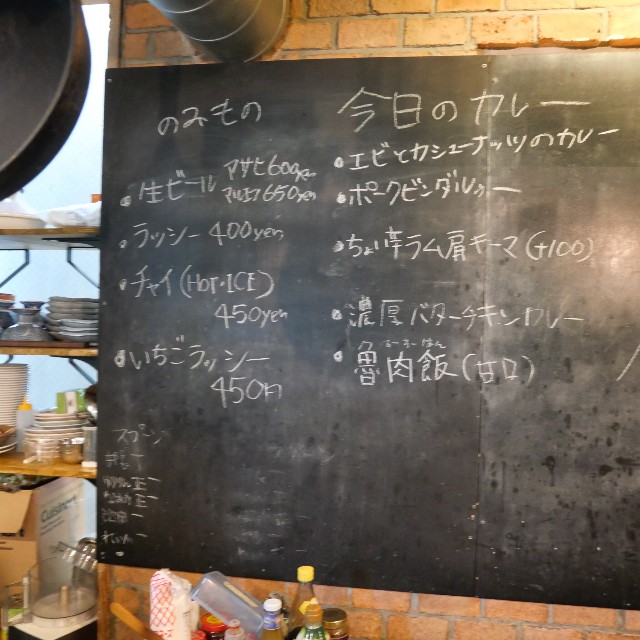 のみもの
・生ビール アサヒ600yen
マルエフ650yen
・ラッシー 400yen
・チャイ(HOT・ICE)
450yen
・いちごラッシー
450円
今日のカレー
・エビとカシューナッツのカレー
・ポークビンダルー
・ちょい辛ラム肩キーマ(+100)
・濃厚バターチキンカレー
・魯肉飯(甘口)